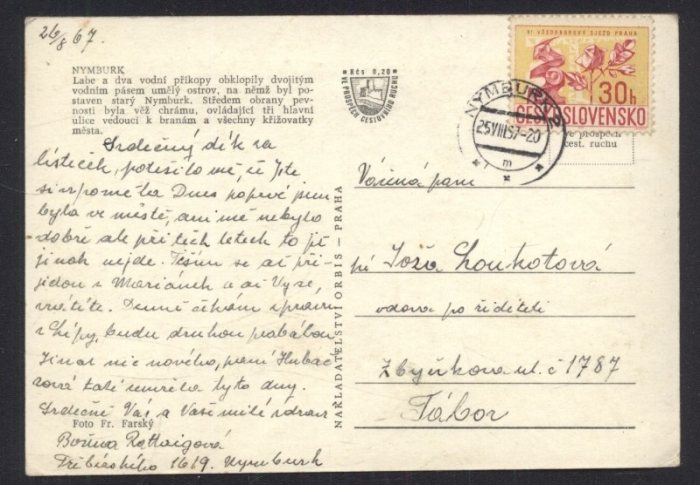 26/8 67.
NYMBURK
Labe a dva vodní příkopy obklopily dvojitým
vodním pásem umělý ostrov, na němž byl po-
staven starý Nymburk. Středem obrany pev-
nosti byla věž chrámu, ovládající tři hlavní
ulice vedoucí k branám a všechny křižovatky
města.
Srdečný dík za
lísteček, potěšilo mě, že jste
si vzpoměla Dnes poprvé jsem
byla ve městě, ani mě nebylo
dobře ale při těch letech to již
jinak nejde. Těším se až při-
jedou s Mariánek a až Vy se,
vrátíte. Denně čekám zprávu
z Lípy, budu druhou prabábou
Jinak nic nového, paní Hubač-
ková také umřela tyto dny.
Srdečně Vás a Vaše milé zdraví
Foto Fr. Farský
Božena
Třebízského 1619. Nymburk
NAKLADATELSTVÍ ORBIS – PRAHA
* Kčs 0,20 *
VE PROSPĚCH CESTOVNÍHO RUCHU
VI VŠEODBOROVÝ SJEZD PRAHA
30h
ČESKOSLOVENSKO
NYMBURK 2
25.VIII.67-20
m
ve prospěch
cest. ruchu
Vážená paní
pí Joža Loukotová
vdova po řediteli
Zbyňkova ul. č 1787
Tábor